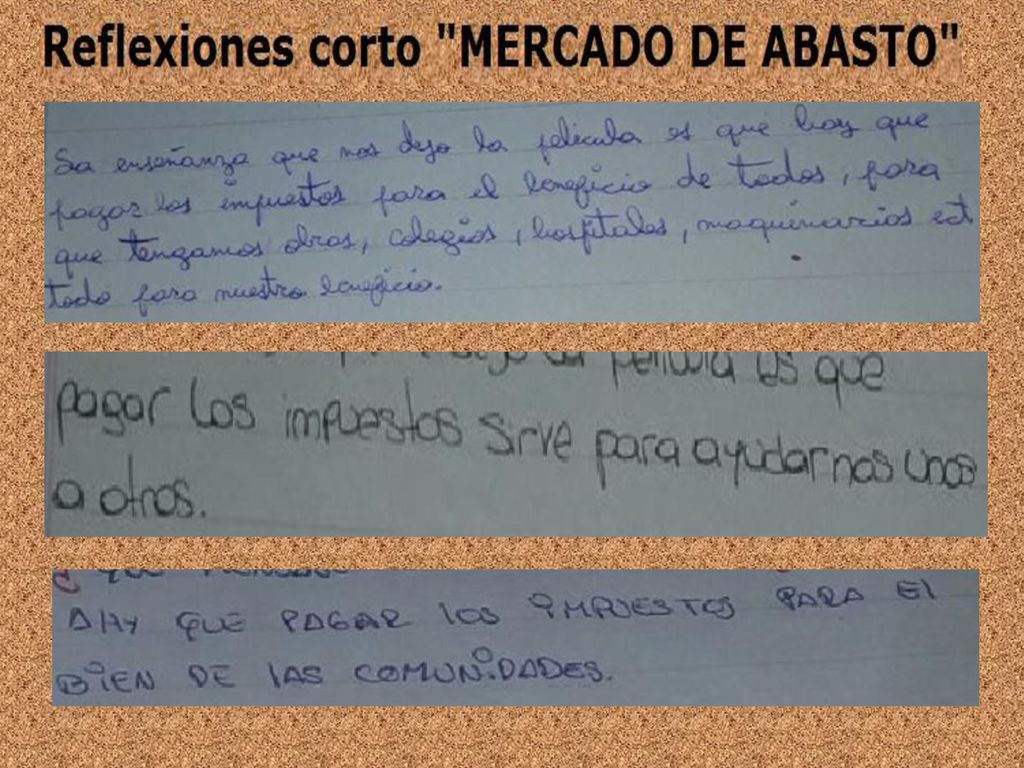 Reflexiones corto "MERCADO DE ABASTO"
La enseñanza que nos dejo la pelicula es que hay que
pagar los impuestos para el beneficio de todos, para
que tengamos obras, colegios, hospitales, maquinarias ect
todo para nuestro beneficio.
la pelicula es que
pagar los impuestos sirve para ayudarnos unos
a otros.
AHY QUE PAGAR los iMPUESTOS PARA El
BiEN DE lAS COMUNiDADES.